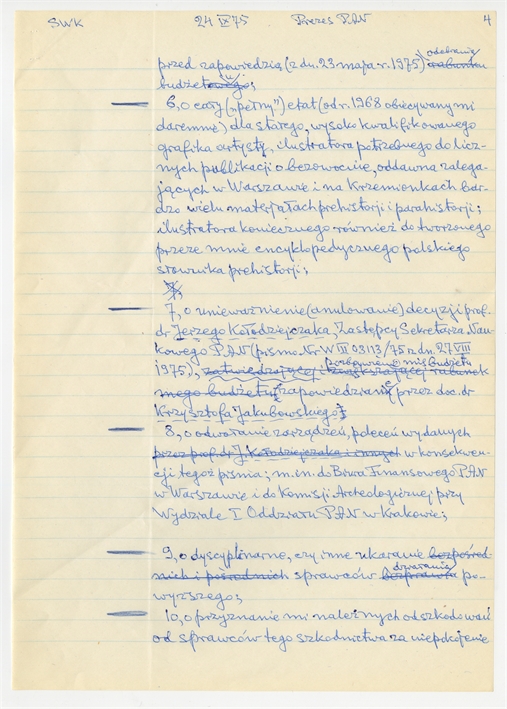 SWK 24 IX 75 Prezes PAN 4
przed zapowiedzią (z dn. 23 maja r. 1975) odebrania rabunku
budżetowego u;
6, o cały („pełny") etat (od r. 1968 obiecywany mi
daremnie) dla starego, wysoko kwalifikowanego
grafika artysty, ilustratora potrzebnego do licz-
nych publikacji o bezowocnie, oddawna zalega-
jących w Warszawie i na Krzemionkach bar-
dzo wielu materjałach prehistorji i parahistorji;
ilustratora koniecznego również do tworzonego
przeze mnie encyklopedycznego polskiego
słownika prehistorji;
7,
7, o unieważnienie (anulowanie) decyzji prof.
dr Jerzego Kołodziejczaka, Zastępcy Sekretarza Nau-
kowego PAN (pismo Nr W III 03113/75 z dn. 27 VIII
1975), zatwierdzającej i zwiększającej rabunek
mego budżetu zapowiedziany przez doc. dr
Krzysztofa Jakubowskiego;
8, o odwołanie zarządzeń, poleceń wydanych
przez prof. dr J. Kołodziejczaka i innych w konsekwen-
cji tegoż pisma; m.in. do Biura Finansowego PAN
w Warszawie i do Komisji Archeologicznej przy
Wydziale I Oddziału PAN w Krakowie;
9, o dyscyplinarne, czy inne ukaranie bezpośred-
nich i pośrednich sprawców działania bezprawia po-
wyższego;
10, o przyznanie mi należnych odszkodowań
od sprawców tego szkodnictwa za niepokojenie